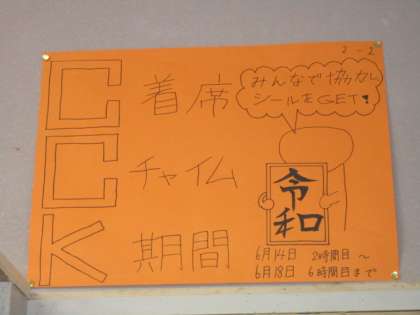 2-2
C 着席
C チャイム
K 期間
みんなで協力し
シールをGET!
令
和
6月14日 2時間目~
6月18日 6時間目まで